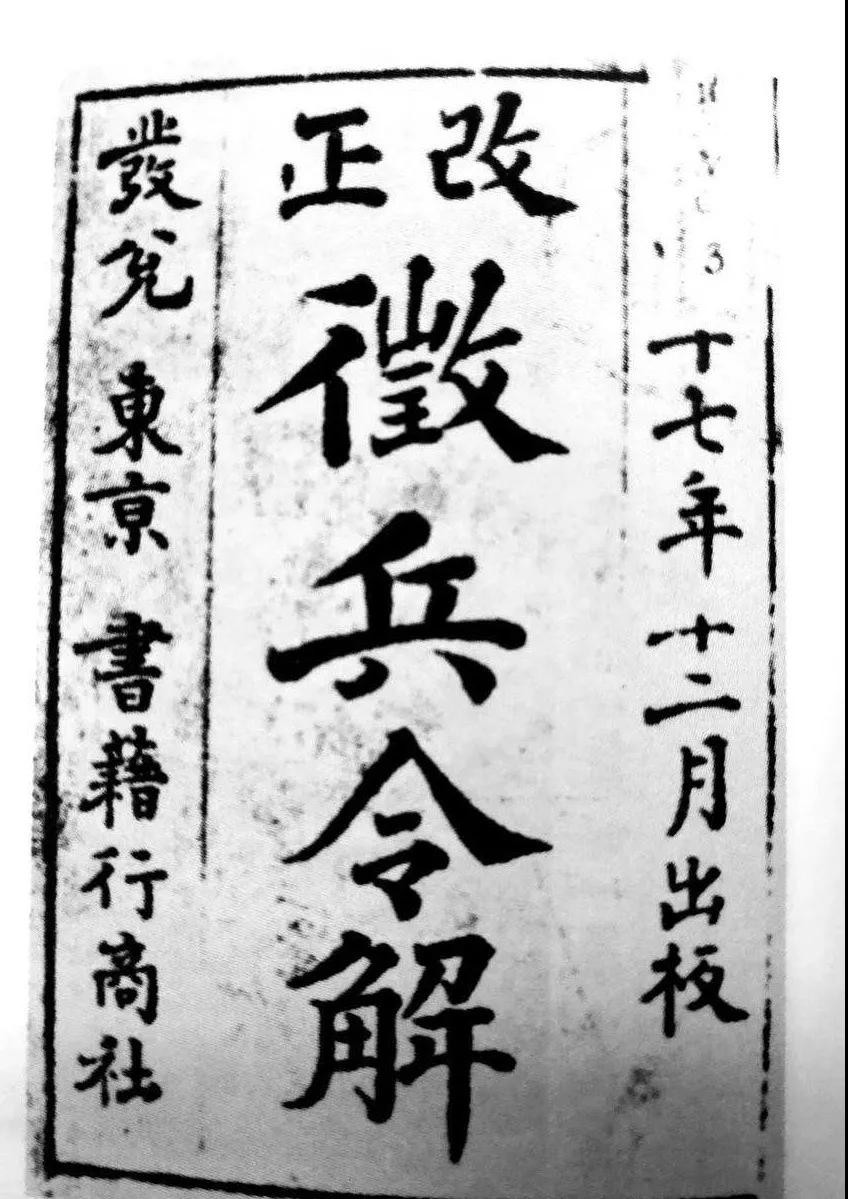 十七年十二月出板
改正
徵兵令解
發兌 東京 書藉行商社